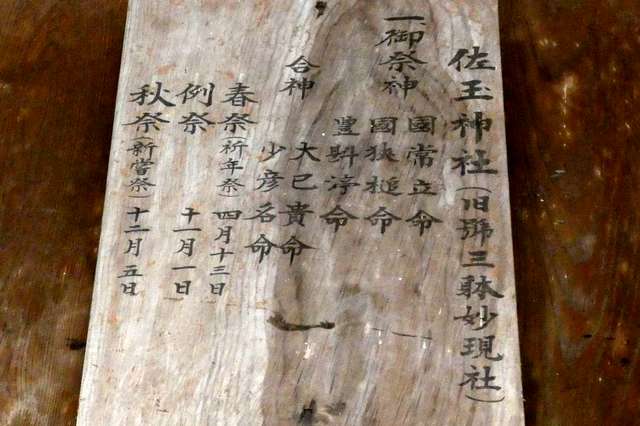 佐玉神社(旧號三躰妙現社)
一、御祭神 國常立命
國狭槌命
豐斟渟命
合神 大已貴命
少彦名命
春祭(祈年祭)四月十三日
例祭 十一月一日
秋祭(新嘗祭)十二月五日